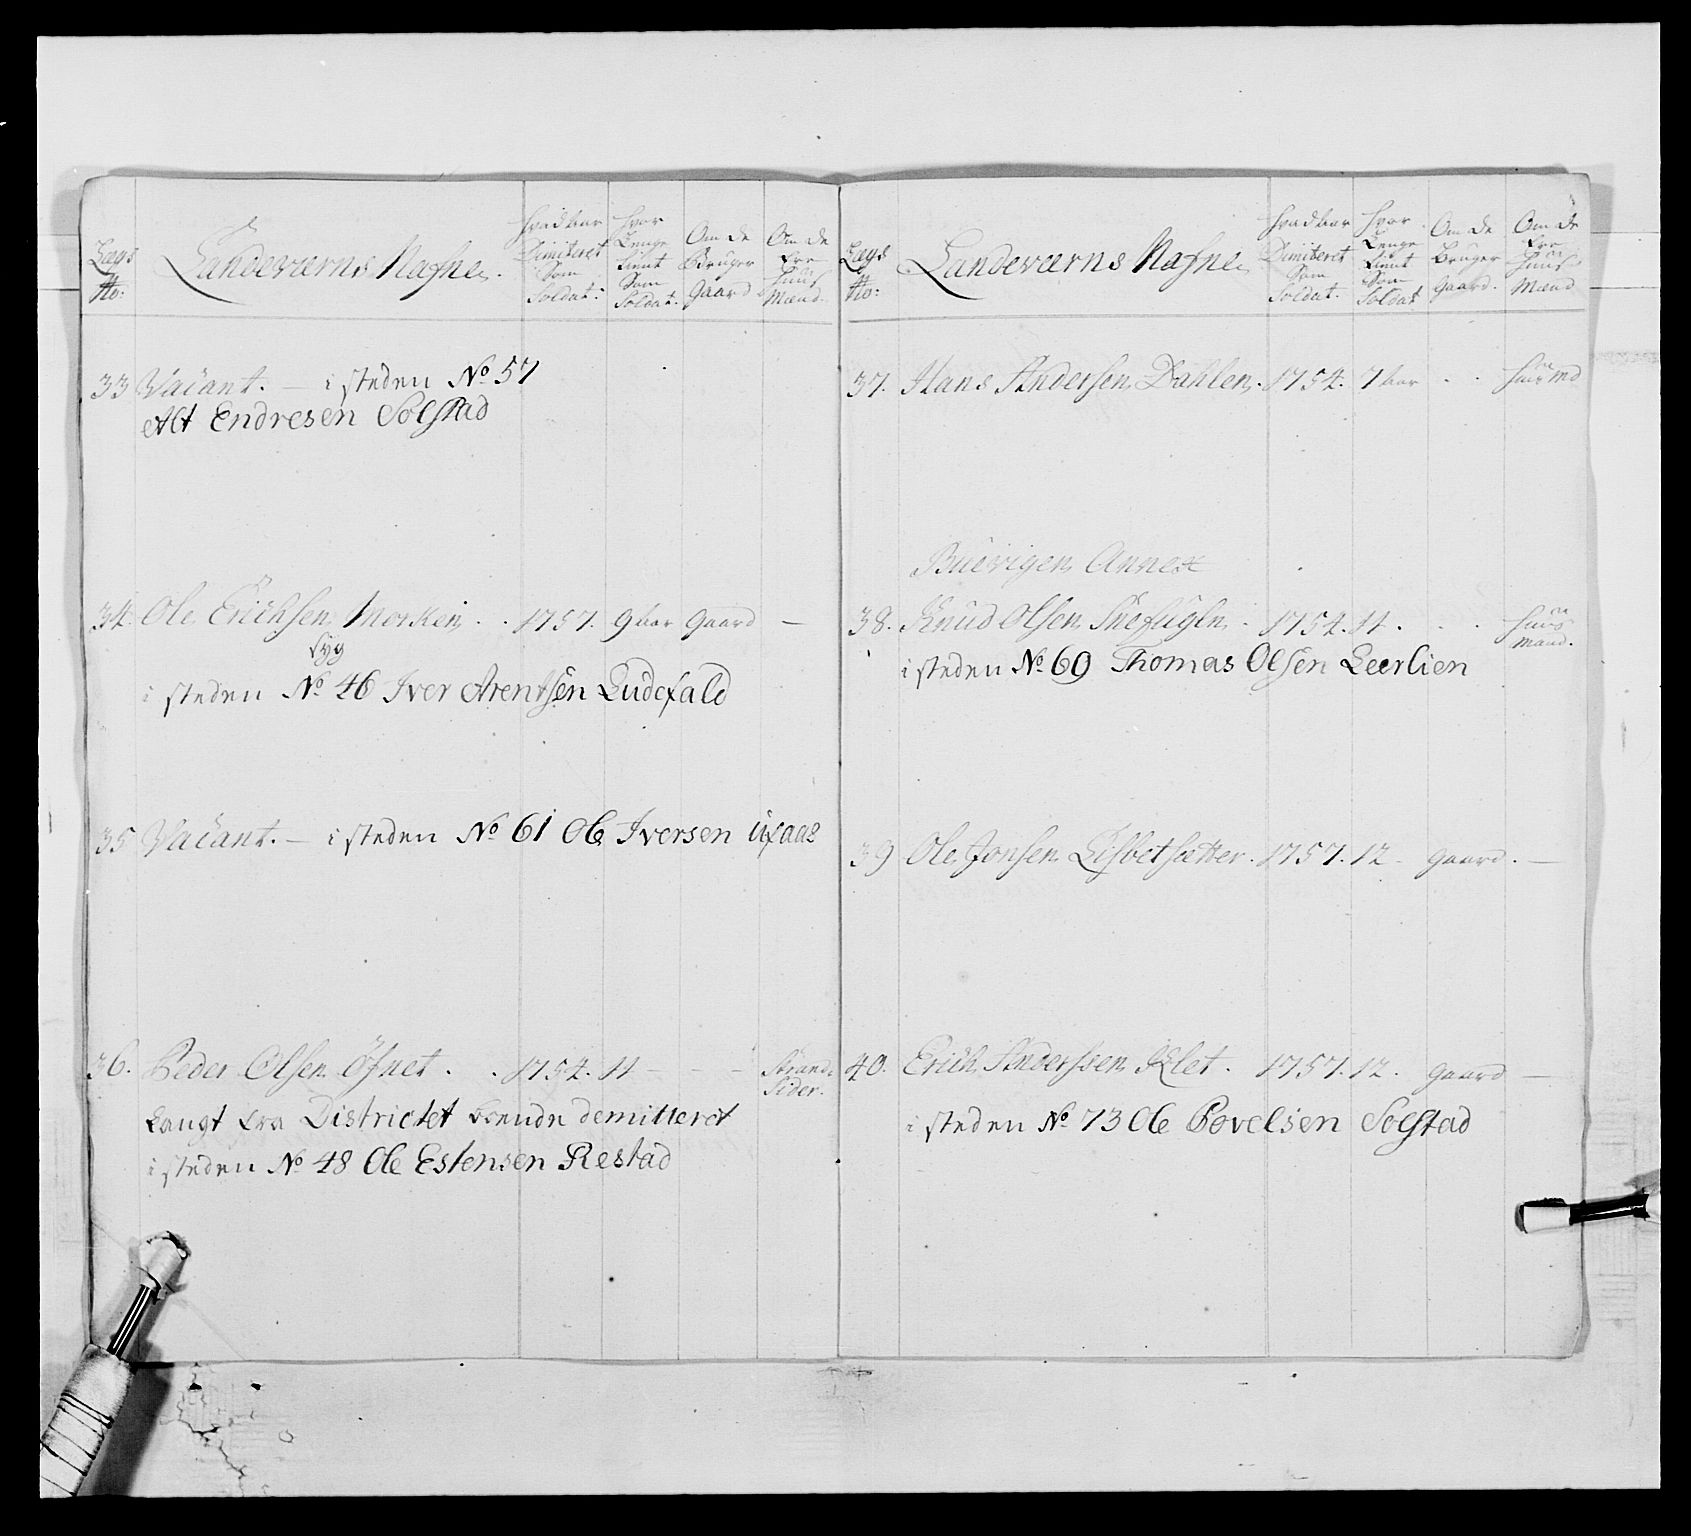 Lægs No: Landeværns Nafne. Hvad Aar Dimiteret Som Soldat: Hvor Lenge Tient Som Soldat. Om de Bruger Gaard Om de Ere Huus Mænd.
33 Vacant. — i steden No 57
Alt Endresen Solstad
34. Ole Erichsen Morken . . 1757. 9 aar Gaard —
syg
i steden No 46 Iver Arentsen Ludefald
35 Vacant. — i steden No 61 Ole Iversen
36. Peder Olsen Öfnet . . 1754. 11 — — — Strand Sider.
Langt fra Districtet boende demitteret
i steden No 48 Ole Estensen Restad
Lægs No: Landeværns Nafne Hvad Aar Dimiteret Som Soldat. Hvor Lenge Tient Som Soldat Om de Bruger Gaard. Om de Ere Huus Mænd
37. Hans Andersen Dahlen. 1754. 7 aar . . Huusmd
Buevigen Annex
38. Knud Olsen . 1754. 11 . . . Huus mand.
i steden No 69 Thomas Olsen Leerlien
39 Ole Jonsen Lisbetsætter. 1757. 12 - Gaard. —
40. Erich Anderssen Klet. 1757. 12. Gaard —
i steden No 73 Ole Povelsen Solstad